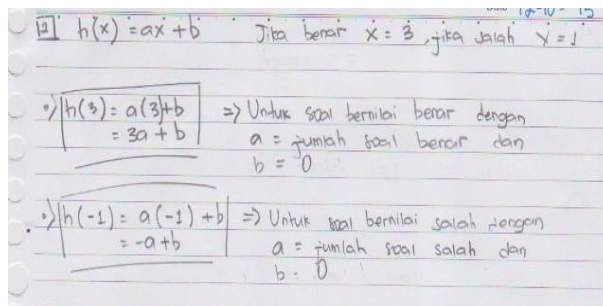 12-10-15
2] h(x) = ax + b Jika benar x = 3, jika salah x = 1
•) h(3) = a(3)+b => Untuk soal bernilai benar dengan
= 3a + b a = jumlah soal benar dan
b = 0
•) h(-1) = a(-1) + b => Untuk soal bernilai salah dengan
= -a+b a = jumlah soal salah dan
b = 0